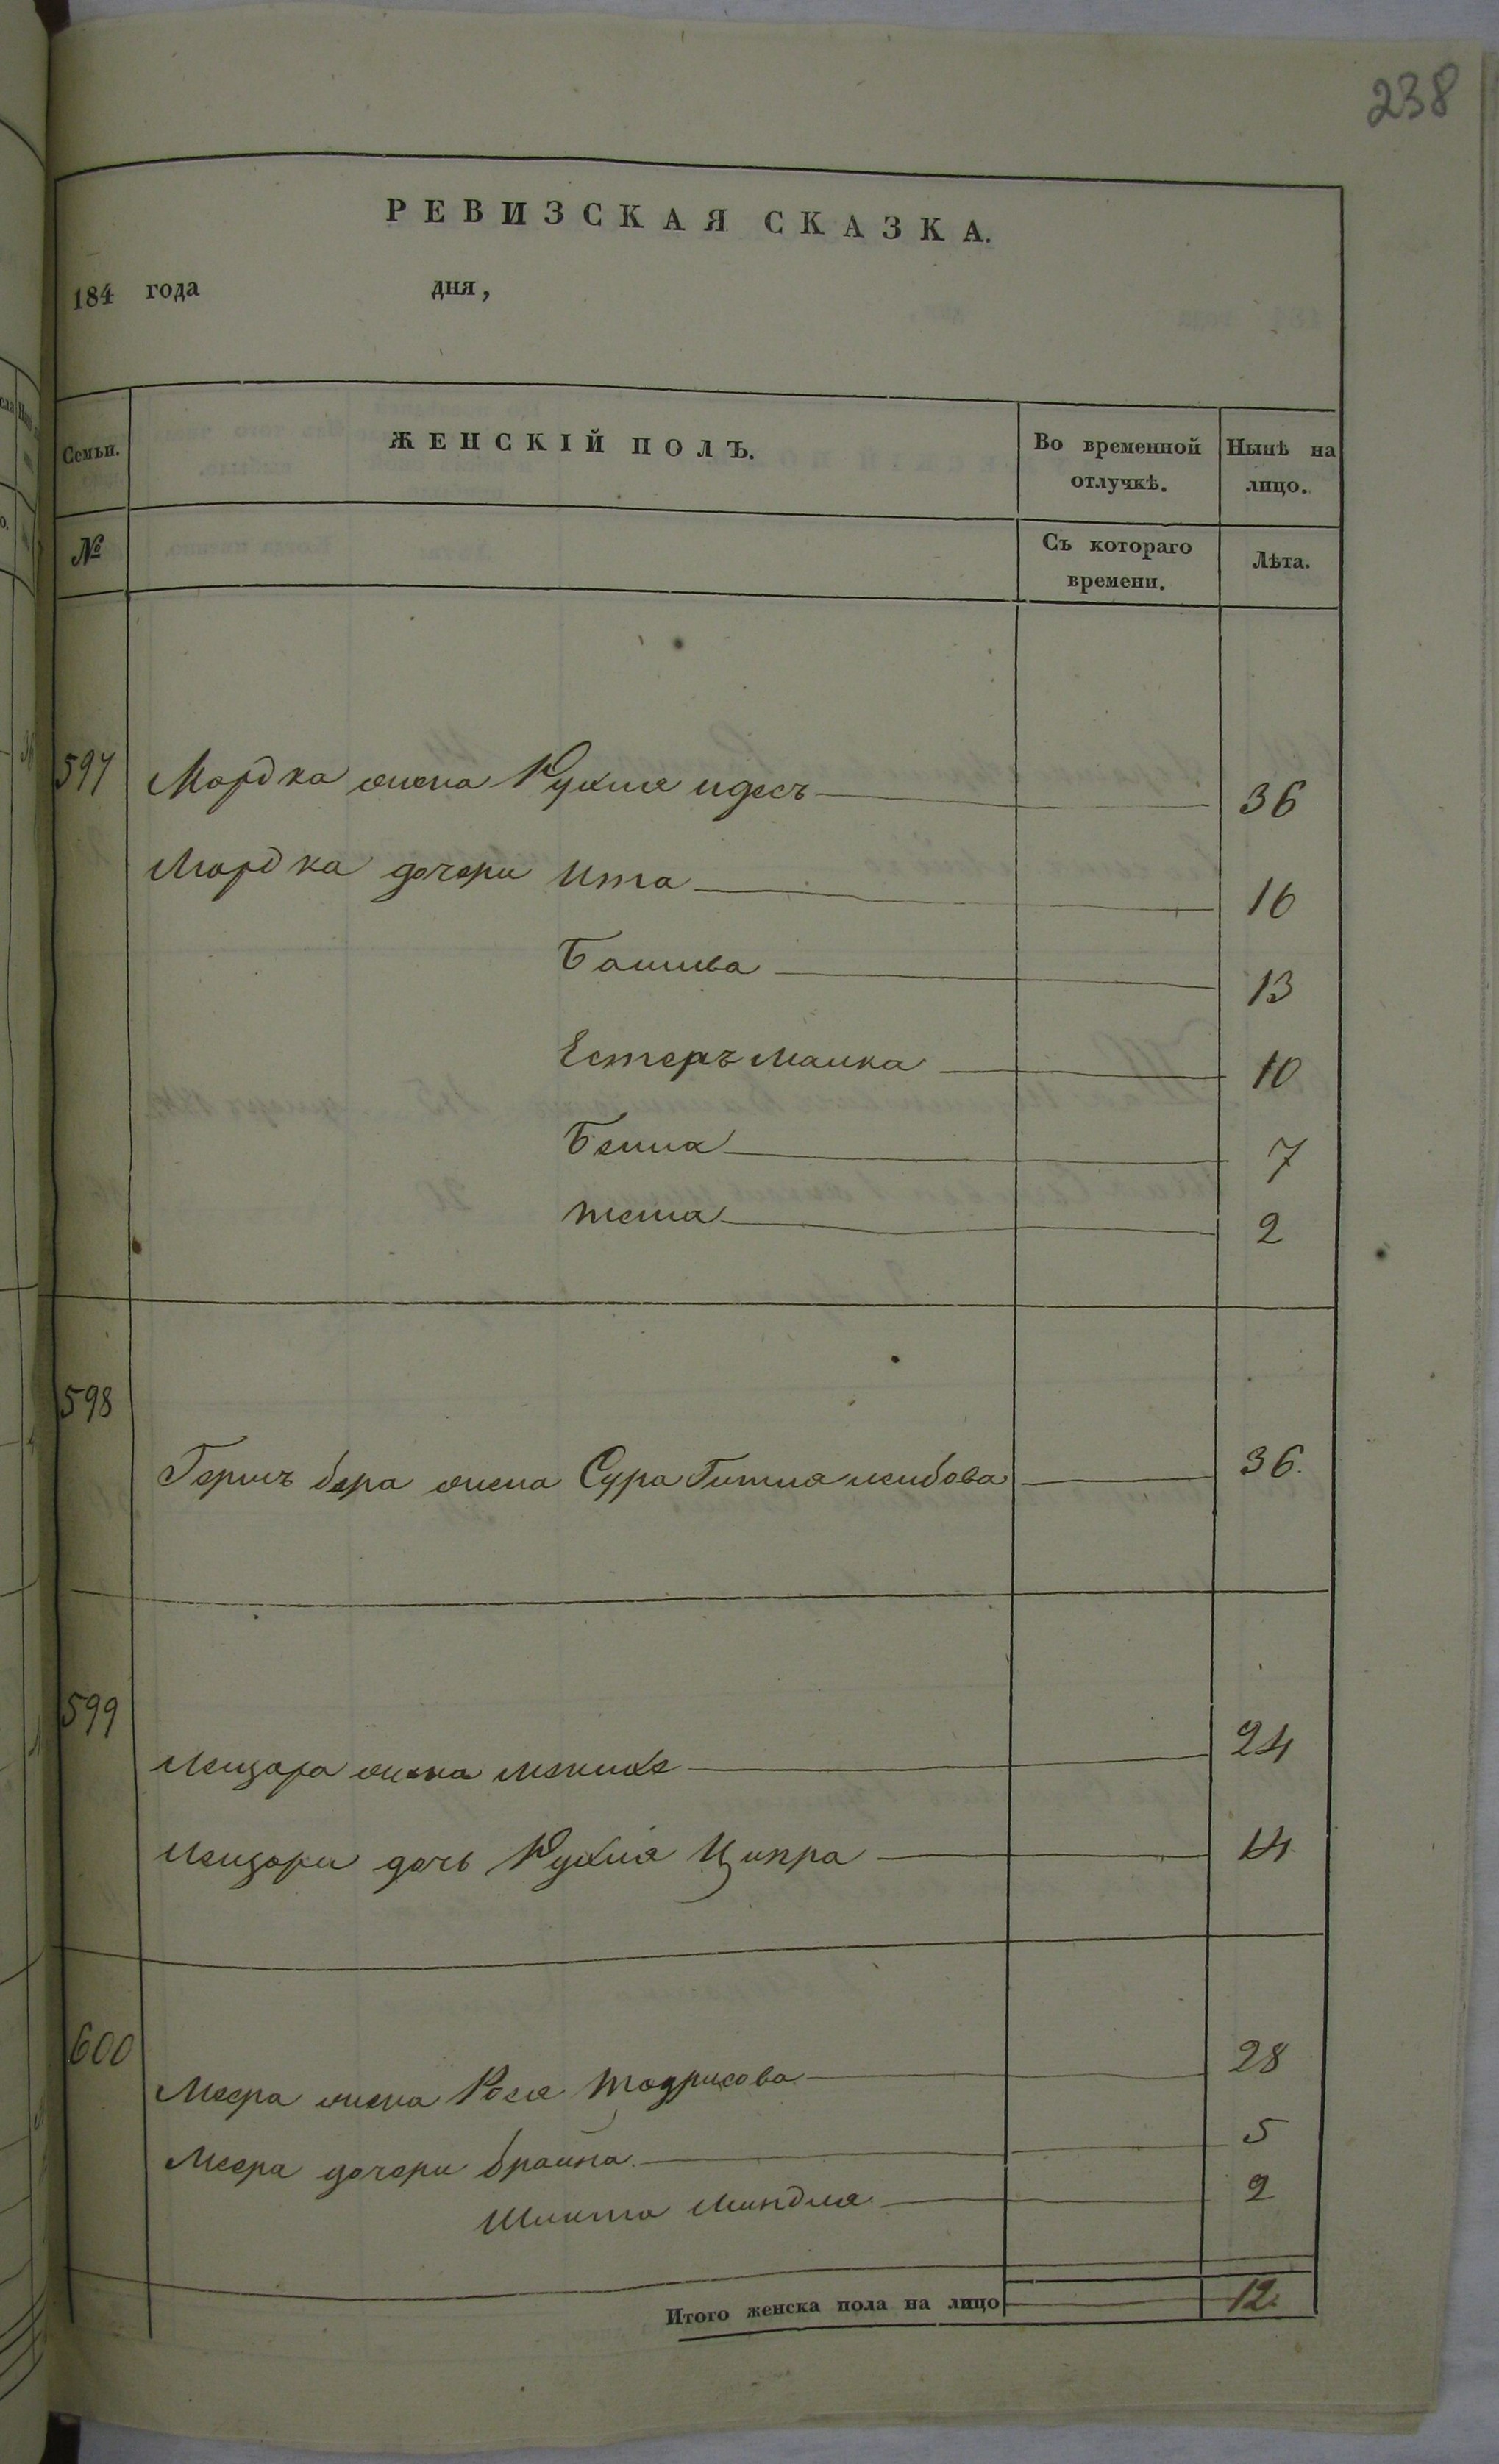 238
РЕВИЗСКАЯ СКАЗКА.
184 года дня,
Семьи. ЖЕНСКІЙ ПОЛЪ. Во временной отлучкѣ. Нынѣ на лицо.
№ Съ котораго времени. Лѣта.
597 Мордка жена Рухля идесъ 36
Мордка дочери Ита 16
Башива 13
Естеръ Малка 10
Бейла 7
2
598
Гершъ бера жена Сура Гитля лейбова 36.
599
Лейзора жена 24
Лейзора дочь Рухля Ципра 14
600
Меера жена Рося Тодрисова 28
Меера дочери брайна 5
Миндля 2
Итого женска пола на лицо 12.